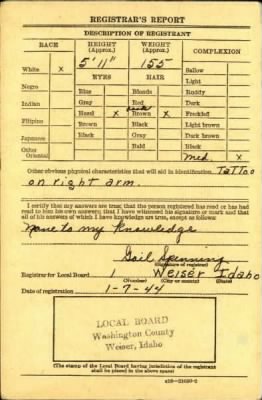 REGISTRAR'S REPORT
DESCRIPTION OF REGISTRANT
RACE HEIGHT (Approx.) WEIGHT (Approx.) COMPLEXION
5' 11" 155 Sallow
White X EYES HAIR Light
Negro Blue Blonde Ruddy
Indian Gray Red Dark
Hazel X dark Freckled
Filipino Brown Brown X Light brown
Japanese Black Gray Dark brown
Other Oriental Bald Black
Black Med X
Other obvious physical characteristics that will aid in identification Tattoo
on right arm.
I certify that my answers are true; that the person registered has read or has had
read to him his own answers; that I have witnessed his signature or mark and that
all of his answers of which I have knowledge are true, except as follows:
None to my Knowledge
Gail Spenning
(Signature of registrar)
Registrar for Local Board 1 Weiser Idaho
(Number) (City or county) (State)
Date of registration 1-7-44
LOCAL BOARD
Washington County
Weiser, Idaho
(The stamp of the Local Board having jurisdiction of the registrant
shall be placed in the above space)